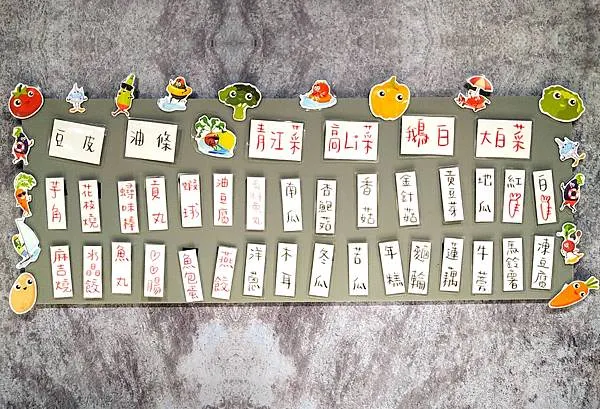 豆皮 油條 青江菜 高山菜 鵝白 大白菜
芋角 花枝燒 蟳味棒 貢丸 蝦球 油豆腐 南瓜 杏鮑菇 香菇 金針菇 黃豆芽 地瓜 紅 白
麻吉燒 水晶餃 魚丸 腸 魚包蛋 燕餃 洋蔥 木耳 冬瓜 苦瓜 年糕 麵輪 蓮藕 牛蒡 馬鈴薯 凍豆腐